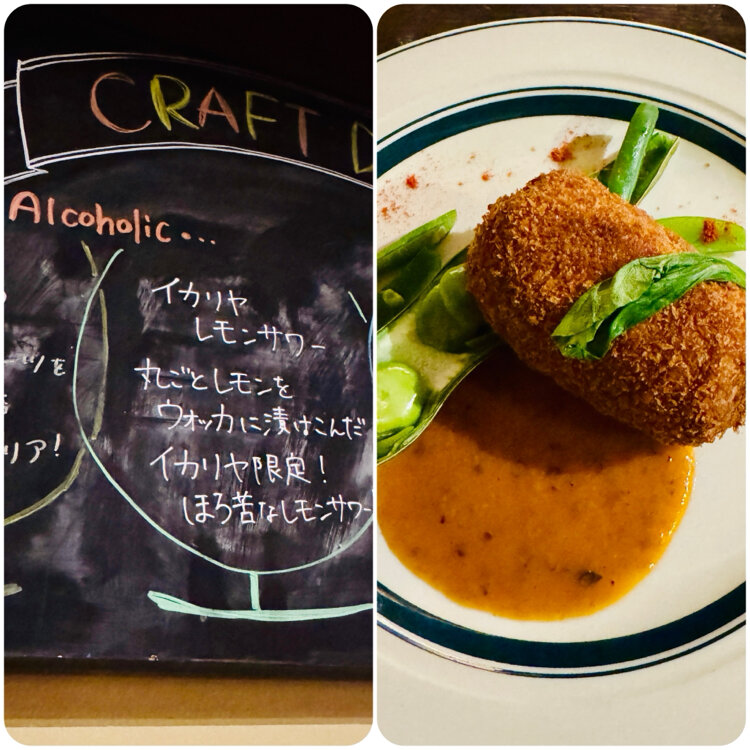 CRAFT D
Alcoholic...
イカリヤ
レモンサワー
丸ごとレモンを
ウオッカに漬けこんだ
イカリヤ限定!
ほろ苦なレモンサワー
ーツを
リア!